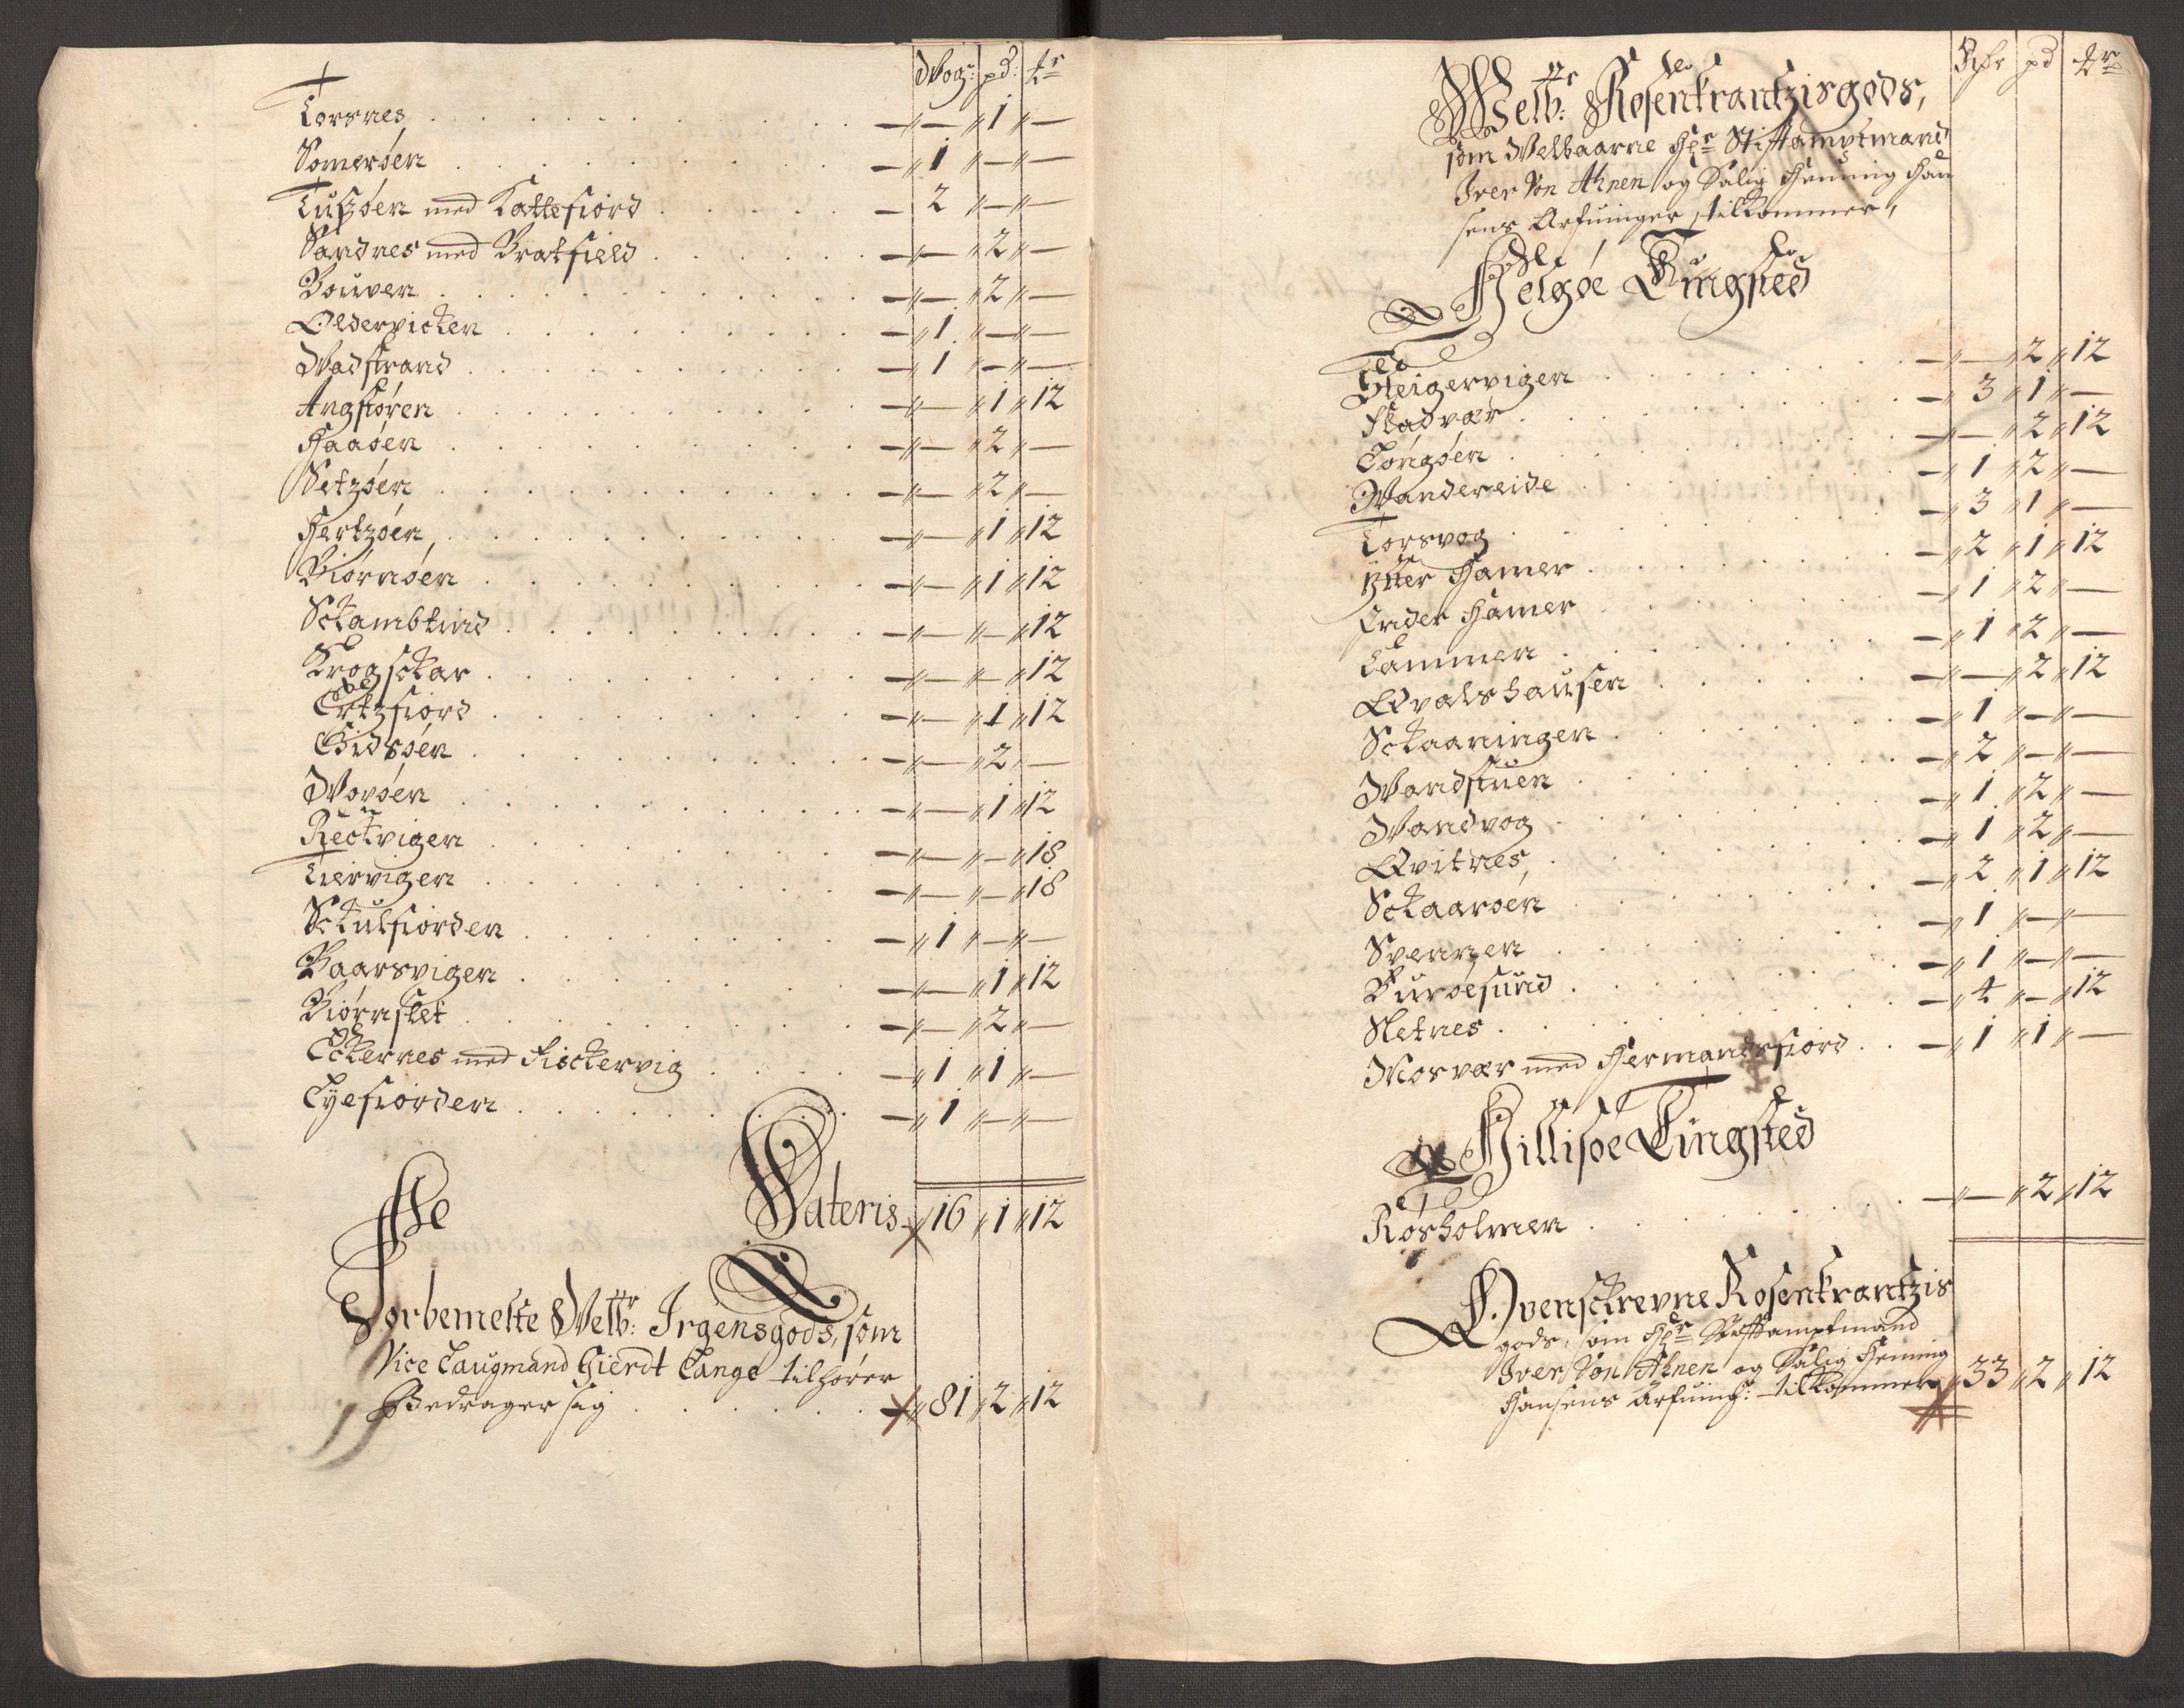 Wog: pd: ℔r
Torsnes . . . — — 1 —
Somerøen . . . — 1 — —
Tußøen med Kattefiord . . . — 2 — —
Sandnes med Bratfield . . . — — 2 —
Bouven . . . — — 2 —
Oldervicken . . . — 1 — —
Wadstrand . . . — 1 — —
Angstøren . . . — — 1 12
Haaøen . . . — — 2 —
Setzøen . . . — — 2 —
Hertzøen, . . . — — 1 12
Biørnøen . . . — — 1 12
Sckambtind . . . — — — 12
Krogsckar . . . — — — 12
Ertzfiord . . . — — 1 12
Gidsøen . . . — — 2 —
Worøen . . . — — 1 12
Reckvigen . . . — — — 18
Tiervigen . . . — — — 18
Sckulfiorden . . . — 1 — —
Baarsvigen . . . — — 1 12
Biørnslet . . . — — 2 —
Eckernes med Fisckervig . . . — 1 1 —
Lyefiorden . . . — 1 — —
Lateris 16 1 12
Forbemelte Welb: Irgensgods, som
Vice Laugmand Gierdt Lange tilhører
Bedrager sig . . . 81 2 12
pd ℔r
Welb: Rosenkrantzisgods,
som Welbaarne Hr Stiftamptmand
Iver Von Ahnen og Salig Henning Han
sens Arfuinger tilkommer,
Helgøe Tingsted
Sleigervigen . . . — — 2 12
Fladvær . . . — 3 1 —
Løngøen . . . — — 2 12
Wandereide . . . — 1 2 —
Torsvog . . . — 3 1 —
Ytter Hamer . . . — 2 1 12
Inder Hamer . . . — 1 2 —
Lammen . . . — 1 2 —
Qvalshausen . . . — — 2 12
Sckaaningen . . . — 1 — —
Wandstuen . . . — 2 — —
Wandvog . . . — 1 2 —
Qvitnes, . . . — 1 2 —
Sckaarøen . . . — 2 1 12
Svenszen . . . — 1 — —
Burøesund . . . — 1 — —
Sletnes . . . — 4 — 12
Morvær med Hermandsfiord . . . — 1 1 —
Hillisøe Tingsted
Røsholmen . . . — — 2 12
Ovensckrevne Rosenkrantzis
gods, som Hr Stiftamptmand
Iver Von Ahnen og Salig Henning
Hansens Arfuing: tilkommer 33 2 12